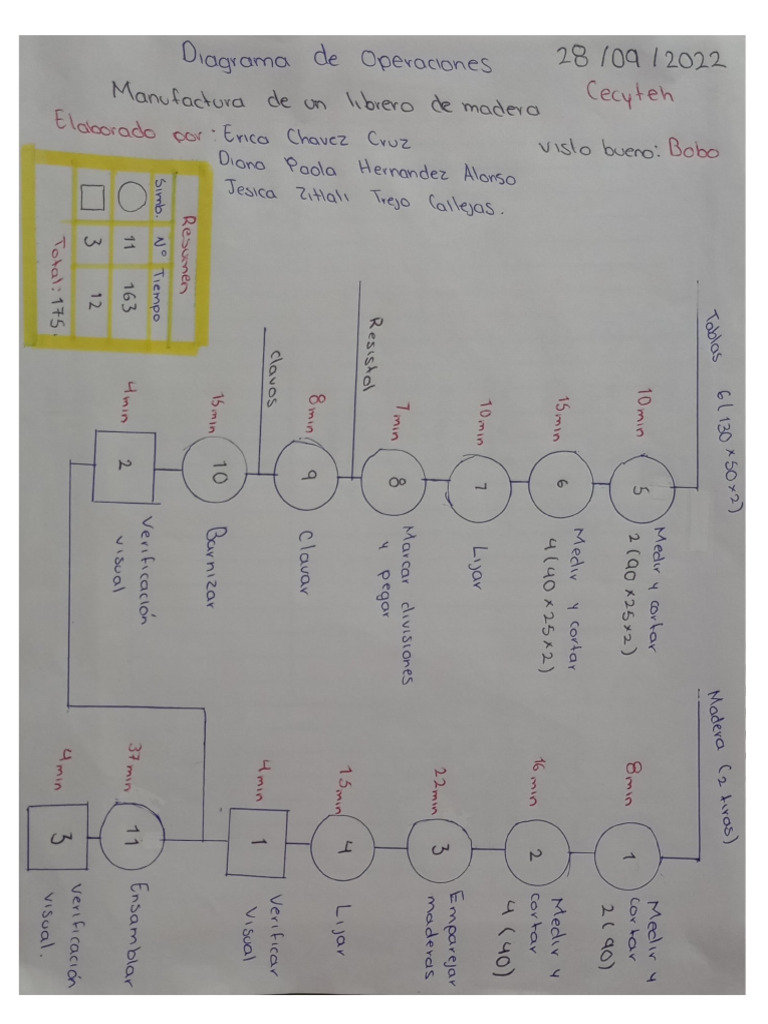 Diagrama de Operaciones
28/09/2022
Manufactura de un librero de madera
Cecyteh
Elaborado por: Erica Chavez Cruz
Visto bueno: Bobo
Diana Paola Hernandez Alonso
Jesica Zitlali Trejo Callejas.
Resumen
Simb. N° Tiempo
11 163
3 12
Total: 175.
Tablas 6(130×50×2)
10min
5
Medir y cortar
2(90×25×2)
15min
6
Medir y cortar
4(40×25×2)
10min
7
Lijar
7min
8
Marcar divisiones
y pegar
Resistol
8min
9
Clavar
Clavos
15min
10
Barnizar
4min
2
Verificación
visual
Madera (2 tiras)
8min
1
Medir y
cortar
2(90)
16min
2
Medir y
cortar
4(40)
22min
3
Emparejar
maderas
15min
4
Lijar
4min
1
Verificar
visual
37min
11
Ensamblar
4min
3
Verificación
visual.